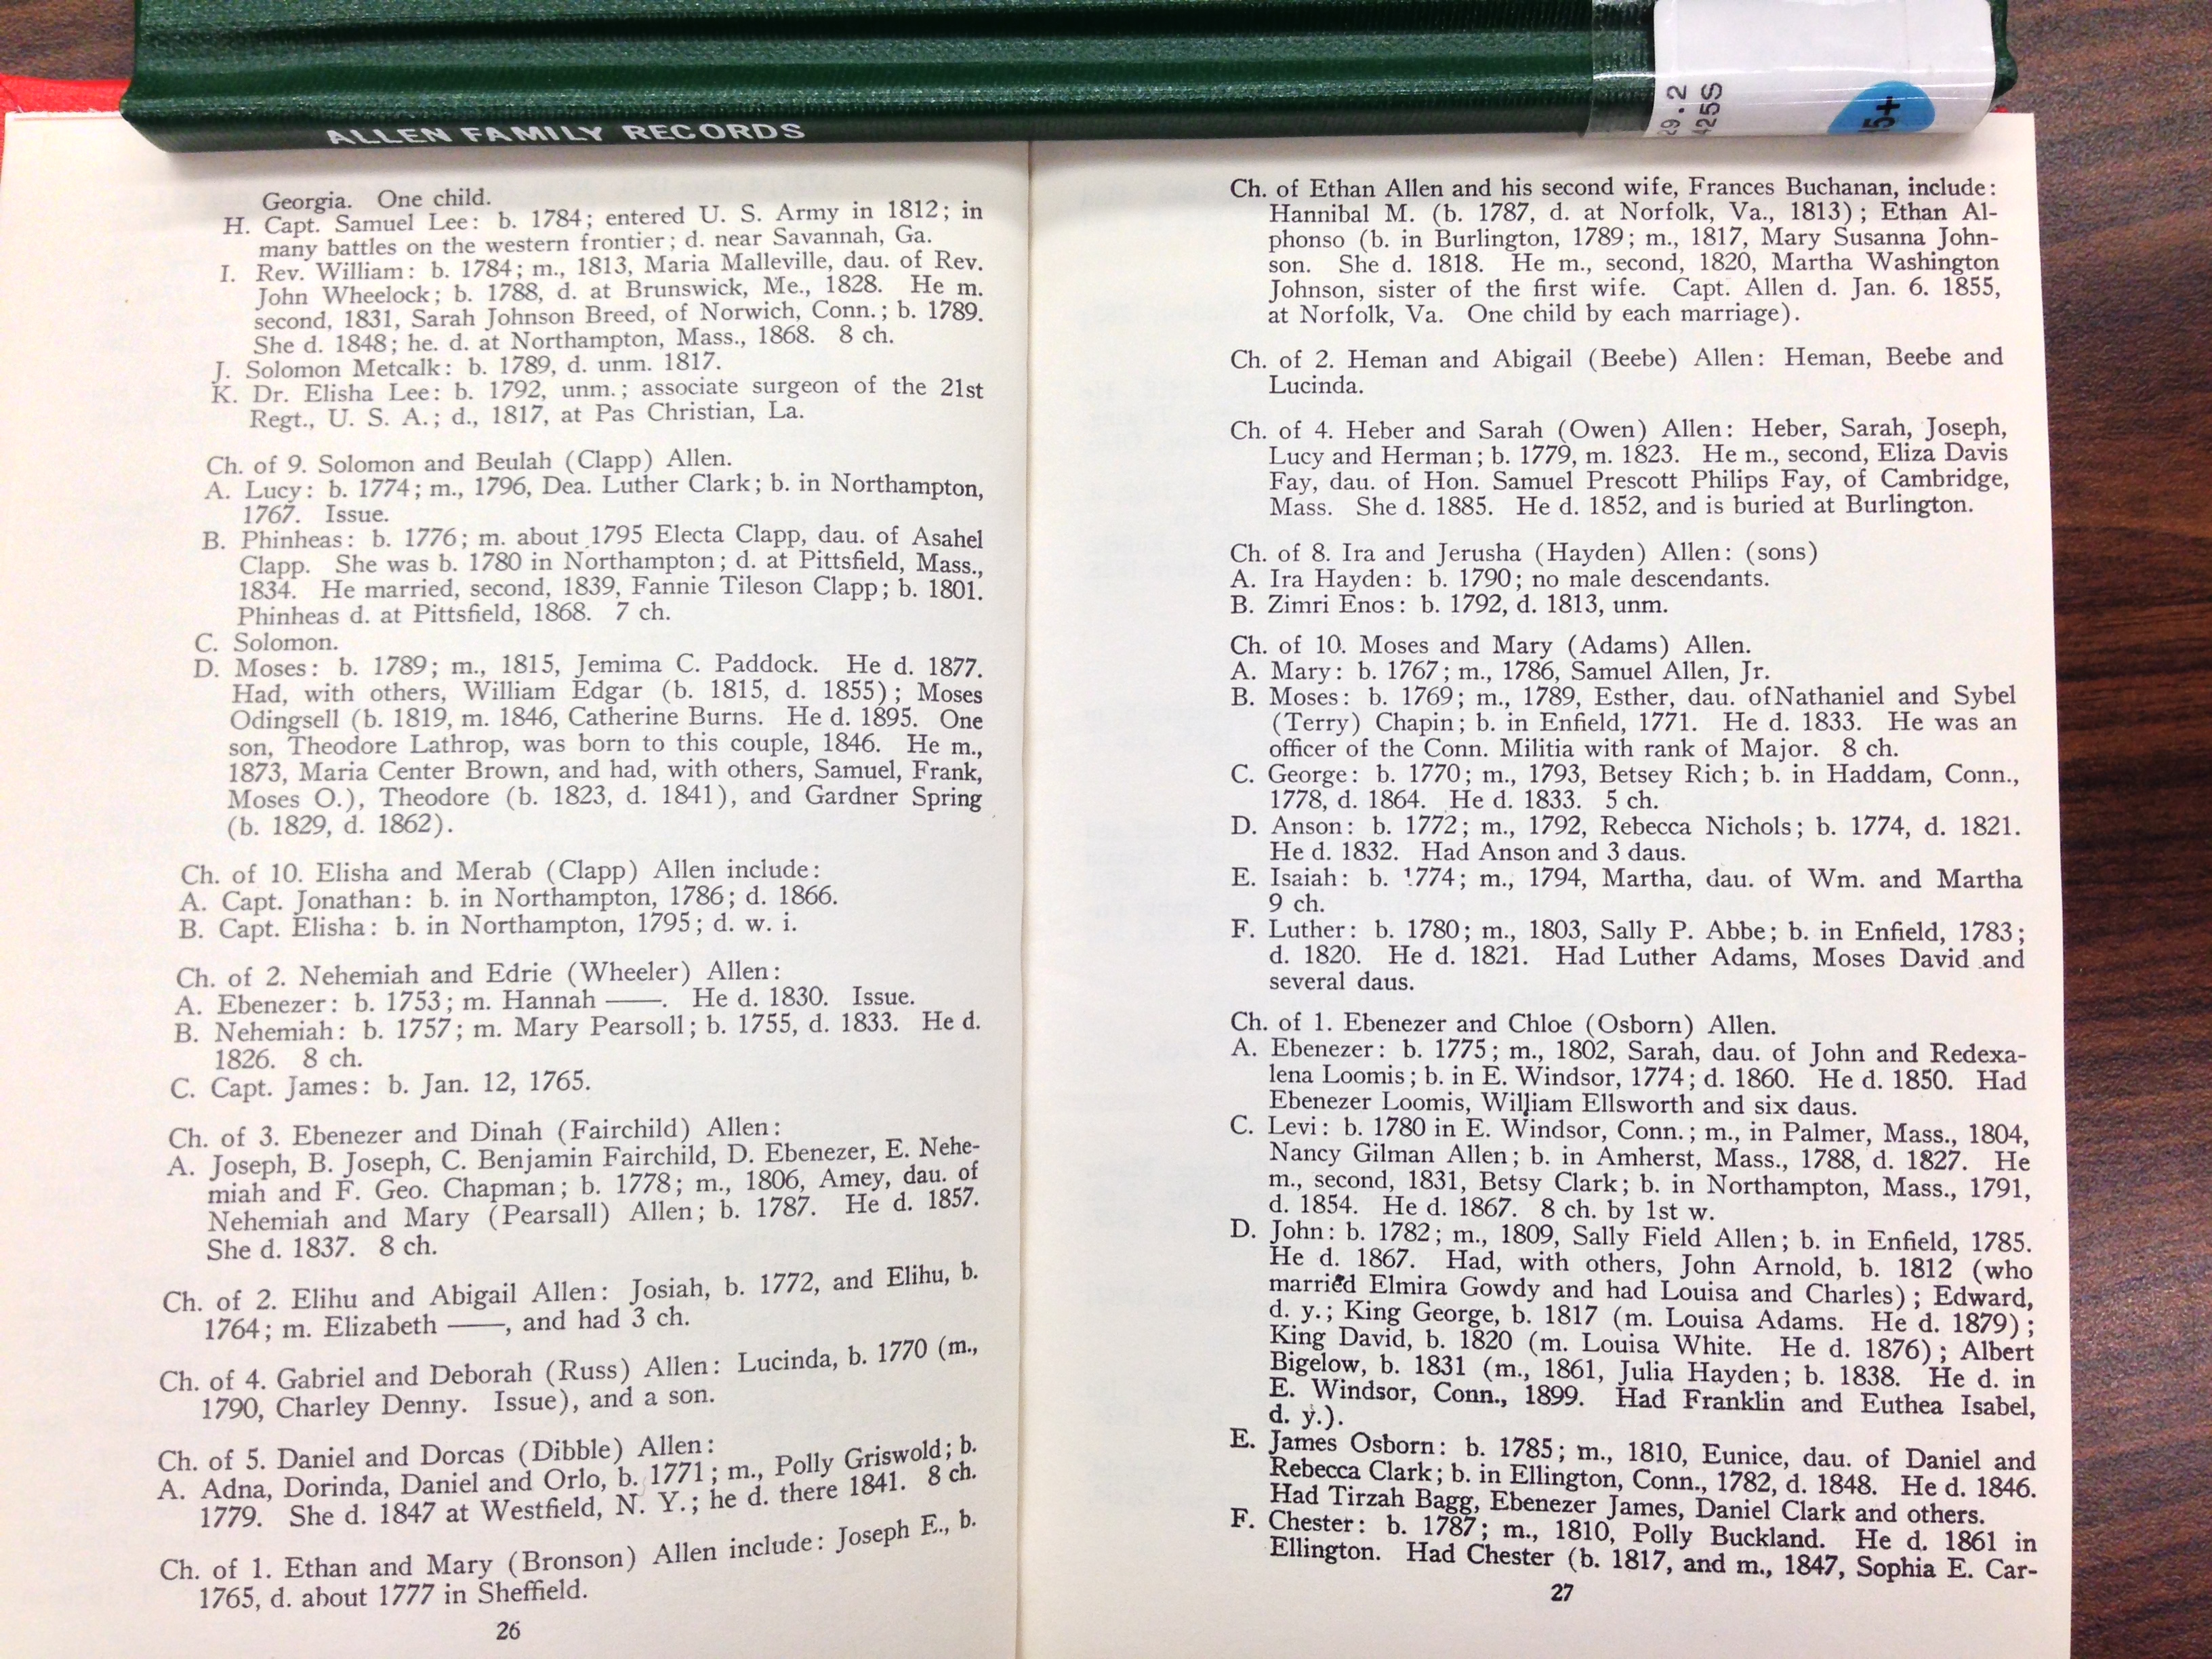 ALLEN FAMILY RECORDS
29.2
425S
5+
Georgia. One child.
H. Capt. Samuel Lee: b. 1784; entered U. S. Army in 1812; in
many battles on the western frontier; d. near Savannah, Ga.
I. Rev. William: b. 1784; m., 1813, Maria Malleville, dau. of Rev.
John Wheelock; b. 1788, d. at Brunswick, Me., 1828. He m.
second, 1831, Sarah Johnson Breed, of Norwich, Conn.; b. 1789.
She d. 1848; he. d. at Northampton, Mass., 1868. 8 ch.
J. Solomon Metcalk: b. 1789, d. unm. 1817.
K. Dr. Elisha Lee: b. 1792, unm.; associate surgeon of the 21st
Regt., U. S. A.; d., 1817, at Pas Christian, La.
Ch. of 9. Solomon and Beulah (Clapp) Allen.
A. Lucy: b. 1774; m., 1796, Dea. Luther Clark; b. in Northampton,
1767. Issue.
B. Phinheas: b. 1776; m. about 1795 Electa Clapp, dau. of Asahel
Clapp. She was b. 1780 in Northampton; d. at Pittsfield, Mass.,
1834. He married, second, 1839, Fannie Tileson Clapp; b. 1801.
Phinheas d. at Pittsfield, 1868. 7 ch.
C. Solomon.
D. Moses: b. 1789; m., 1815, Jemima C. Paddock. He d. 1877.
Had, with others, William Edgar (b. 1815, d. 1855); Moses
Odingsell (b. 1819, m. 1846, Catherine Burns. He d. 1895. One
son, Theodore Lathrop, was born to this couple, 1846. He m.,
1873, Maria Center Brown, and had, with others, Samuel, Frank,
Moses O.), Theodore (b. 1823, d. 1841), and Gardner Spring
(b. 1829, d. 1862).
Ch. of 10. Elisha and Merab (Clapp) Allen include:
A. Capt. Jonathan: b. in Northampton, 1786; d. 1866.
B. Capt. Elisha: b. in Northampton, 1795; d. w. i.
Ch. of 2. Nehemiah and Edrie (Wheeler) Allen:
A. Ebenezer: b. 1753; m. Hannah ——. He d. 1830. Issue.
B. Nehemiah: b. 1757; m. Mary Pearsoll; b. 1755, d. 1833. He d.
1826. 8 ch.
C. Capt. James: b. Jan. 12, 1765.
Ch. of 3. Ebenezer and Dinah (Fairchild) Allen:
A. Joseph, B. Joseph, C. Benjamin Fairchild, D. Ebenezer, E. Nehe-
miah and F. Geo. Chapman; b. 1778; m., 1806, Amey, dau. of
Nehemiah and Mary (Pearsall) Allen; b. 1787. He d. 1857.
She d. 1837. 8 ch.
Ch. of 2. Elihu and Abigail Allen: Josiah, b. 1772, and Elihu, b.
1764; m. Elizabeth ——, and had 3 ch.
Ch. of 4. Gabriel and Deborah (Russ) Allen: Lucinda, b. 1770 (m.,
1790, Charley Denny. Issue), and a son.
Ch. of 5. Daniel and Dorcas (Dibble) Allen:
A. Adna, Dorinda, Daniel and Orlo, b. 1771; m., Polly Griswold; b.
1779. She d. 1847 at Westfield, N. Y.; he d. there 1841. 8 ch.
Ch. of 1. Ethan and Mary (Bronson) Allen include: Joseph E., b.
1765, d. about 1777 in Sheffield.
26
Ch. of Ethan Allen and his second wife, Frances Buchanan, include:
Hannibal M. (b. 1787, d. at Norfolk, Va., 1813); Ethan Al-
phonso (b. in Burlington, 1789; m., 1817, Mary Susanna John-
son. She d. 1818. He m., second, 1820, Martha Washington
Johnson, sister of the first wife. Capt. Allen d. Jan. 6. 1855,
at Norfolk, Va. One child by each marriage).
Ch. of 2. Heman and Abigail (Beebe) Allen: Heman, Beebe and
Lucinda.
Ch. of 4. Heber and Sarah (Owen) Allen: Heber, Sarah, Joseph,
Lucy and Herman; b. 1779, m. 1823. He m., second, Eliza Davis
Fay, dau. of Hon. Samuel Prescott Philips Fay, of Cambridge,
Mass. She d. 1885. He d. 1852, and is buried at Burlington.
Ch. of 8. Ira and Jerusha (Hayden) Allen: (sons)
A. Ira Hayden: b. 1790; no male descendants.
B. Zimri Enos: b. 1792, d. 1813, unm.
Ch. of 10. Moses and Mary (Adams) Allen.
A. Mary: b. 1767; m., 1786, Samuel Allen, Jr.
B. Moses: b. 1769; m., 1789, Esther, dau. ofNathaniel and Sybel
(Terry) Chapin; b. in Enfield, 1771. He d. 1833. He was an
officer of the Conn. Militia with rank of Major. 8 ch.
C. George: b. 1770; m., 1793, Betsey Rich; b. in Haddam, Conn.,
1778, d. 1864. He d. 1833. 5 ch.
D. Anson: b. 1772; m., 1792, Rebecca Nichols; b. 1774, d. 1821.
He d. 1832. Had Anson and 3 daus.
E. Isaiah: b. 1774; m., 1794, Martha, dau. of Wm. and Martha
9 ch.
F. Luther: b. 1780; m., 1803, Sally P. Abbe; b. in Enfield, 1783;
d. 1820. He d. 1821. Had Luther Adams, Moses David and
several daus.
Ch. of 1. Ebenezer and Chloe (Osborn) Allen.
A. Ebenezer: b. 1775; m., 1802, Sarah, dau. of John and Redexa-
lena Loomis; b. in E. Windsor, 1774; d. 1860. He d. 1850. Had
Ebenezer Loomis, William Ellsworth and six daus.
C. Levi: b. 1780 in E. Windsor, Conn.; m., in Palmer, Mass., 1804,
Nancy Gilman Allen; b. in Amherst, Mass., 1788, d. 1827. He
m., second, 1831, Betsy Clark; b. in Northampton, Mass., 1791,
d. 1854. He d. 1867. 8 ch. by 1st w.
D. John: b. 1782; m., 1809, Sally Field Allen; b. in Enfield, 1785.
He d. 1867. Had, with others, John Arnold, b. 1812 (who
married Elmira Gowdy and had Louisa and Charles); Edward,
d. y.; King George, b. 1817 (m. Louisa Adams. He d. 1879);
King David, b. 1820 (m. Louisa White. He d. 1876); Albert
Bigelow, b. 1831 (m., 1861, Julia Hayden; b. 1838. He d. in
E. Windsor, Conn., 1899. Had Franklin and Euthea Isabel,
d. y.).
E. James Osborn: b. 1785; m., 1810, Eunice, dau. of Daniel and
Rebecca Clark; b. in Ellington, Conn., 1782, d. 1848. He d. 1846.
Had Tirzah Bagg, Ebenezer James, Daniel Clark and others.
F. Chester: b. 1787; m., 1810, Polly Buckland. He d. 1861 in
Ellington. Had Chester (b. 1817, and m., 1847, Sophia E. Car-
27